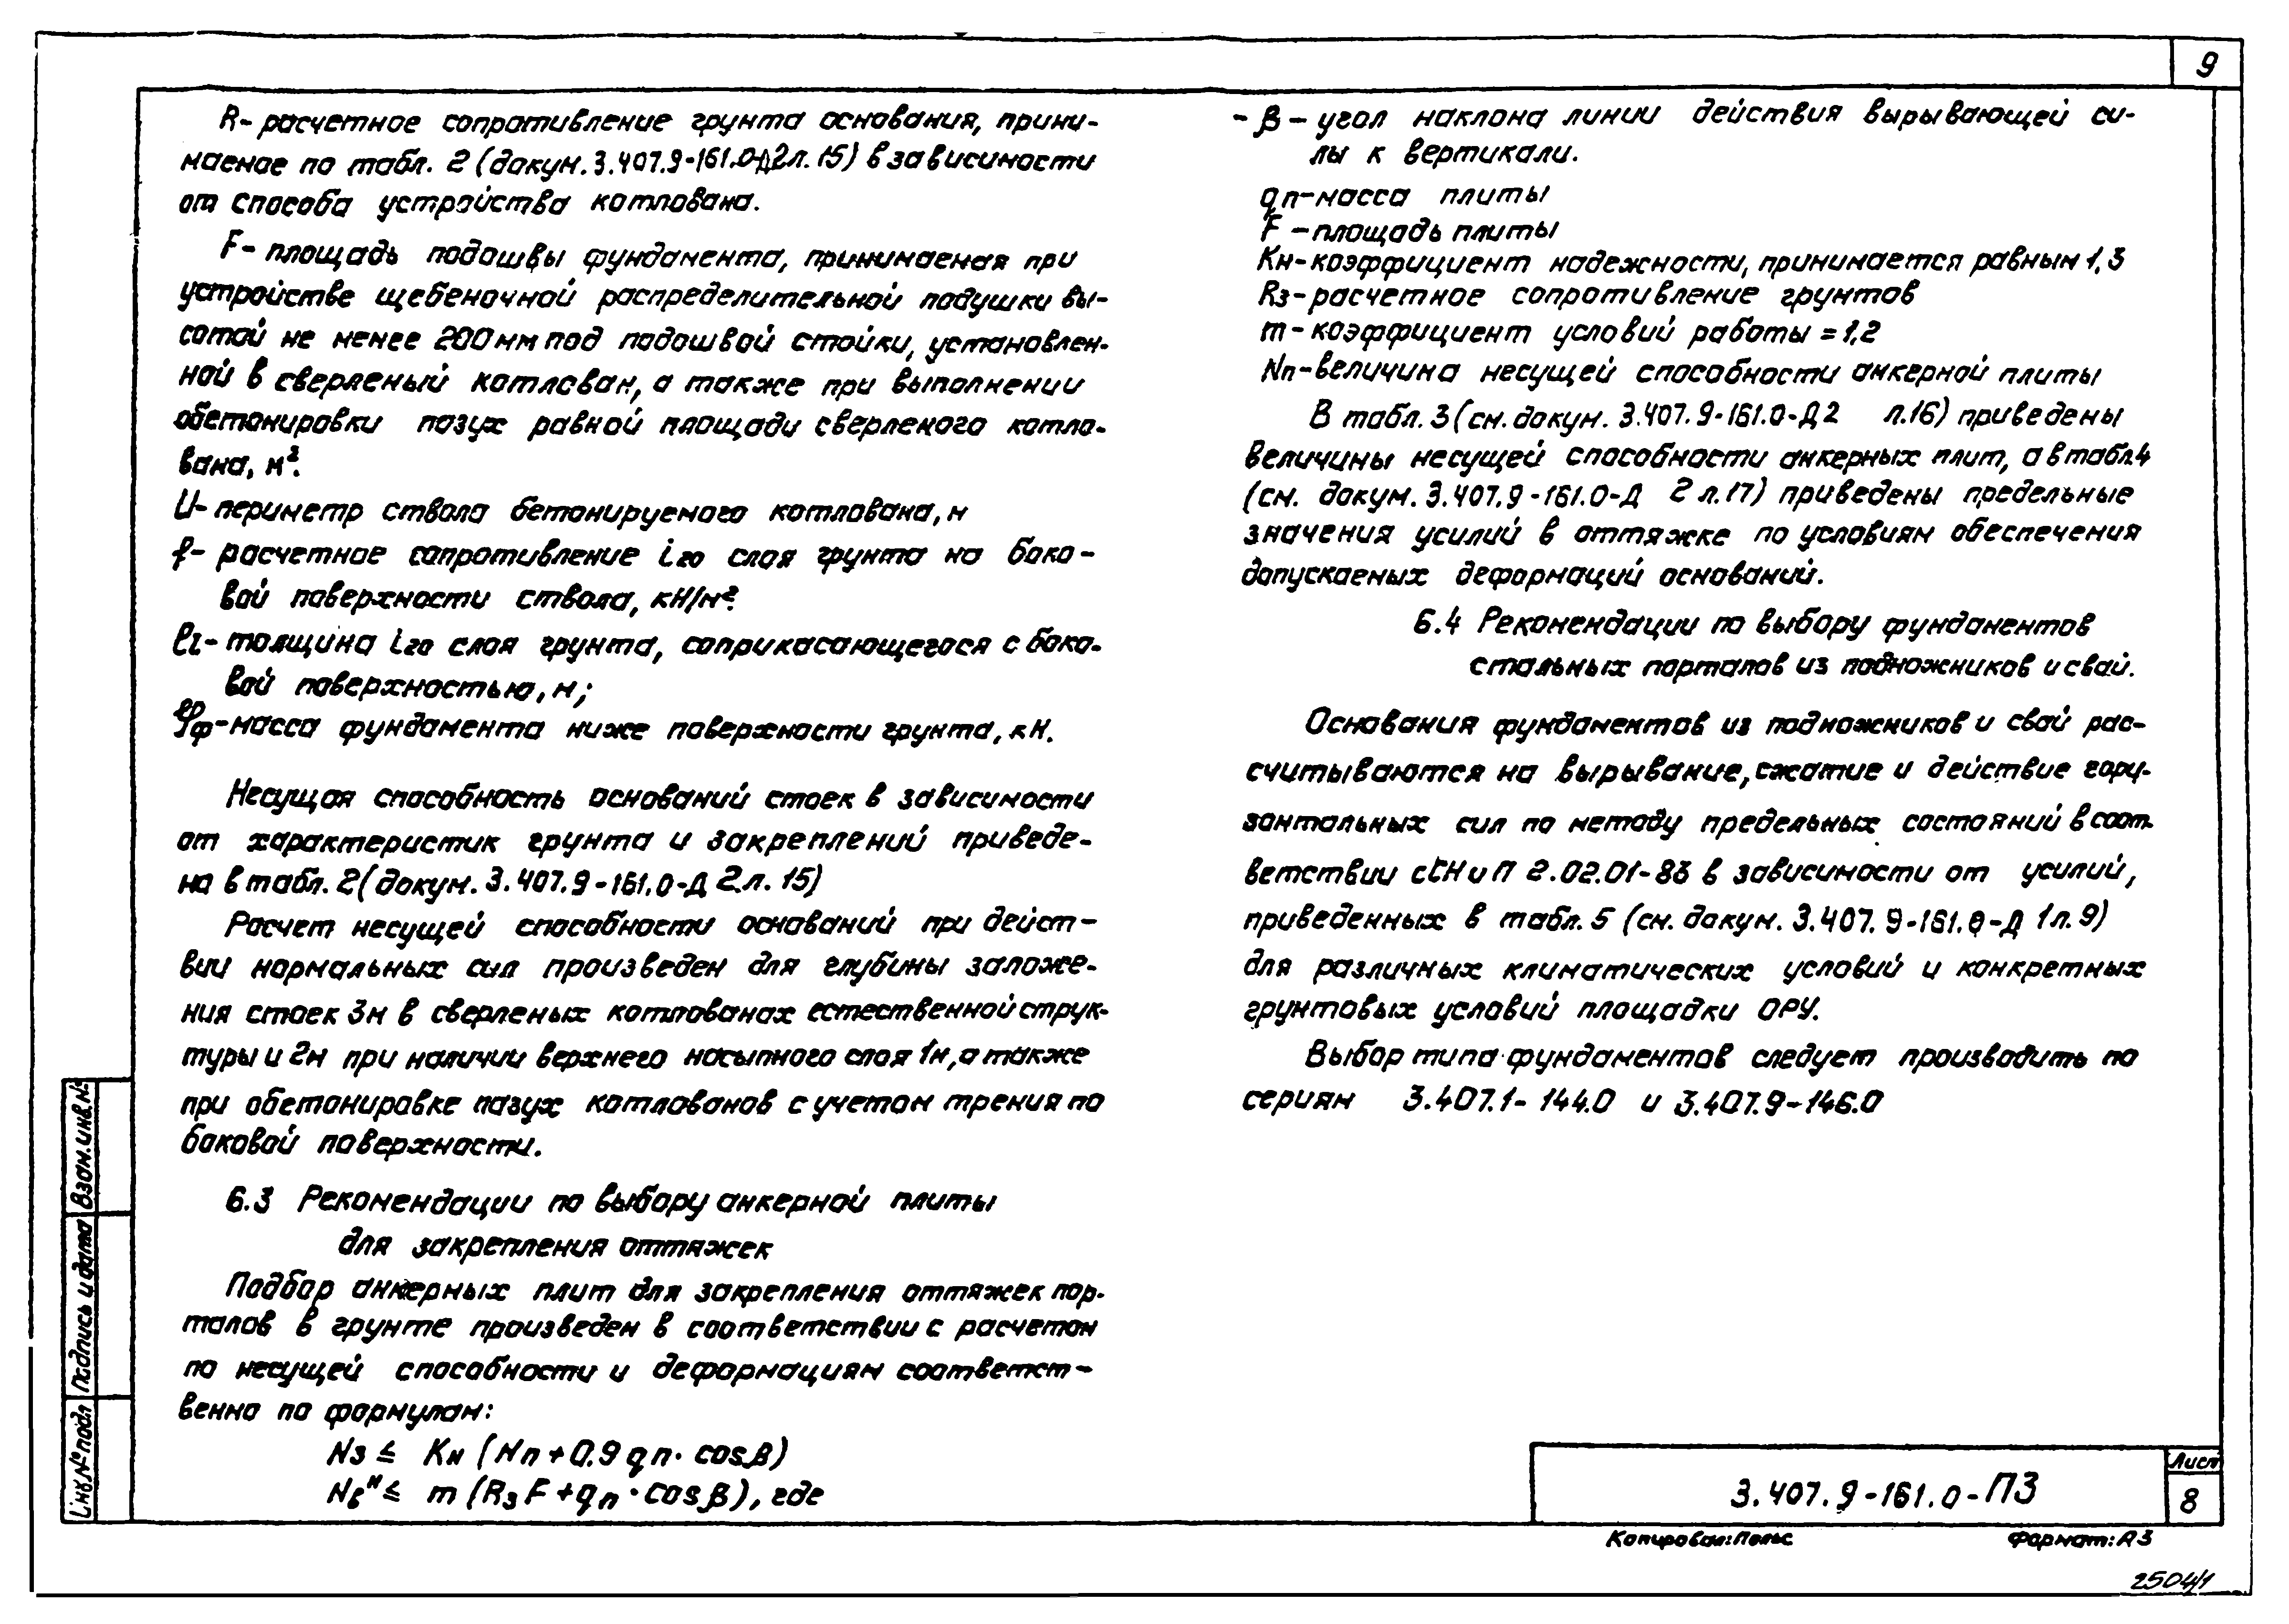 9
R- расчетное сопротивление грунта основания, прини-
маемое по табл. 2 (докум. 3.407.9-161.0-Д2 л. 15) в зависимости
от способа устройства котлована.
F- площадь подошвы фундамента, принимаемая при
устройстве щебеночной распределительной подушки вы-
сотой не менее 200 мм под подошвой стойки, установлен-
ной в сверленый котлован, а также при выполнении
обетонировки пазух равной площади сверленого котло-
вана, м².
U- периметр ствола бетонируемого котлована, м
f- расчетное сопротивление iго слоя грунта на боко-
вой поверхности ствола, кН/м².
ℓi- толщина iго слоя грунта, соприкасающегося с боко-
вой поверхностью, м;
gф- масса фундамента ниже поверхности грунта, кН.
Несущая способность оснований стоек в зависимости
от характеристик грунта и закреплений приведе-
на в табл. 2 (докум. 3.407.9-161.0-Д 2 л. 15)
Расчет несущей способности оснований при дейст-
вии нормальных сил произведен для глубины заложе-
ния стоек 3м в сверленых котлованах естественной струк-
туры и 2м при наличии верхнего насыпного слоя 1м, а также
при обетонировке пазух котлованов с учетом трения по
боковой поверхности.
6.3 Рекомендации по выбору анкерной плиты
для закрепления оттяжек
Подбор анкерных плит для закрепления оттяжек пор-
талов в грунте произведен в соответствии с расчетом
по несущей способности и деформациям соответст-
венно по формулам:
Nз ≤ Kн (Nп + 0.9 qп · cosβ)
Nвᴴ ≤ m (Rз F + qп · cosβ), где
- β - угол наклона линии действия вырывающей си-
лы к вертикали.
qп - масса плиты
F - площадь плиты
Kн - коэффициент надежности, принимается равным 1,3
Rз - расчетное сопротивление грунтов
m - коэффициент условий работы = 1,2
Nп - величина несущей способности анкерной плиты
В табл. 3 (см. докум. 3.407.9-161.0-Д2 л.16) приведены
величины несущей способности анкерных плит, а в табл.4
(см. докум. 3.407.9-161.0-Д 2 л.17) приведены предельные
значения усилий в оттяжке по условиям обеспечения
допускаемых деформаций оснований.
6.4 Рекомендации по выбору фундаментов
стальных порталов из подножников и свай.
Основания фундаментов из подножников и свай рас-
считываются на вырывание, сжатие и действие гори-
зонтальных сил по методу предельных состояний в соот-
ветствии с СНиП 2.02.01-83 в зависимости от усилий,
приведенных в табл. 5 (см. докум. 3.407.9-161.0-Д 1 л. 9)
для различных климатических условий и конкретных
грунтовых условий площадки ОРУ.
Выбор типа фундаментов следует производить по
сериям 3.407.1-144.0 и 3.407.9-146.0
Взам. инв.№
Подпись и дата
Инв.№ подл
3.407.9-161.0-ПЗ
Лист
8
Копировал: Польс
Формат: А3
2504/1